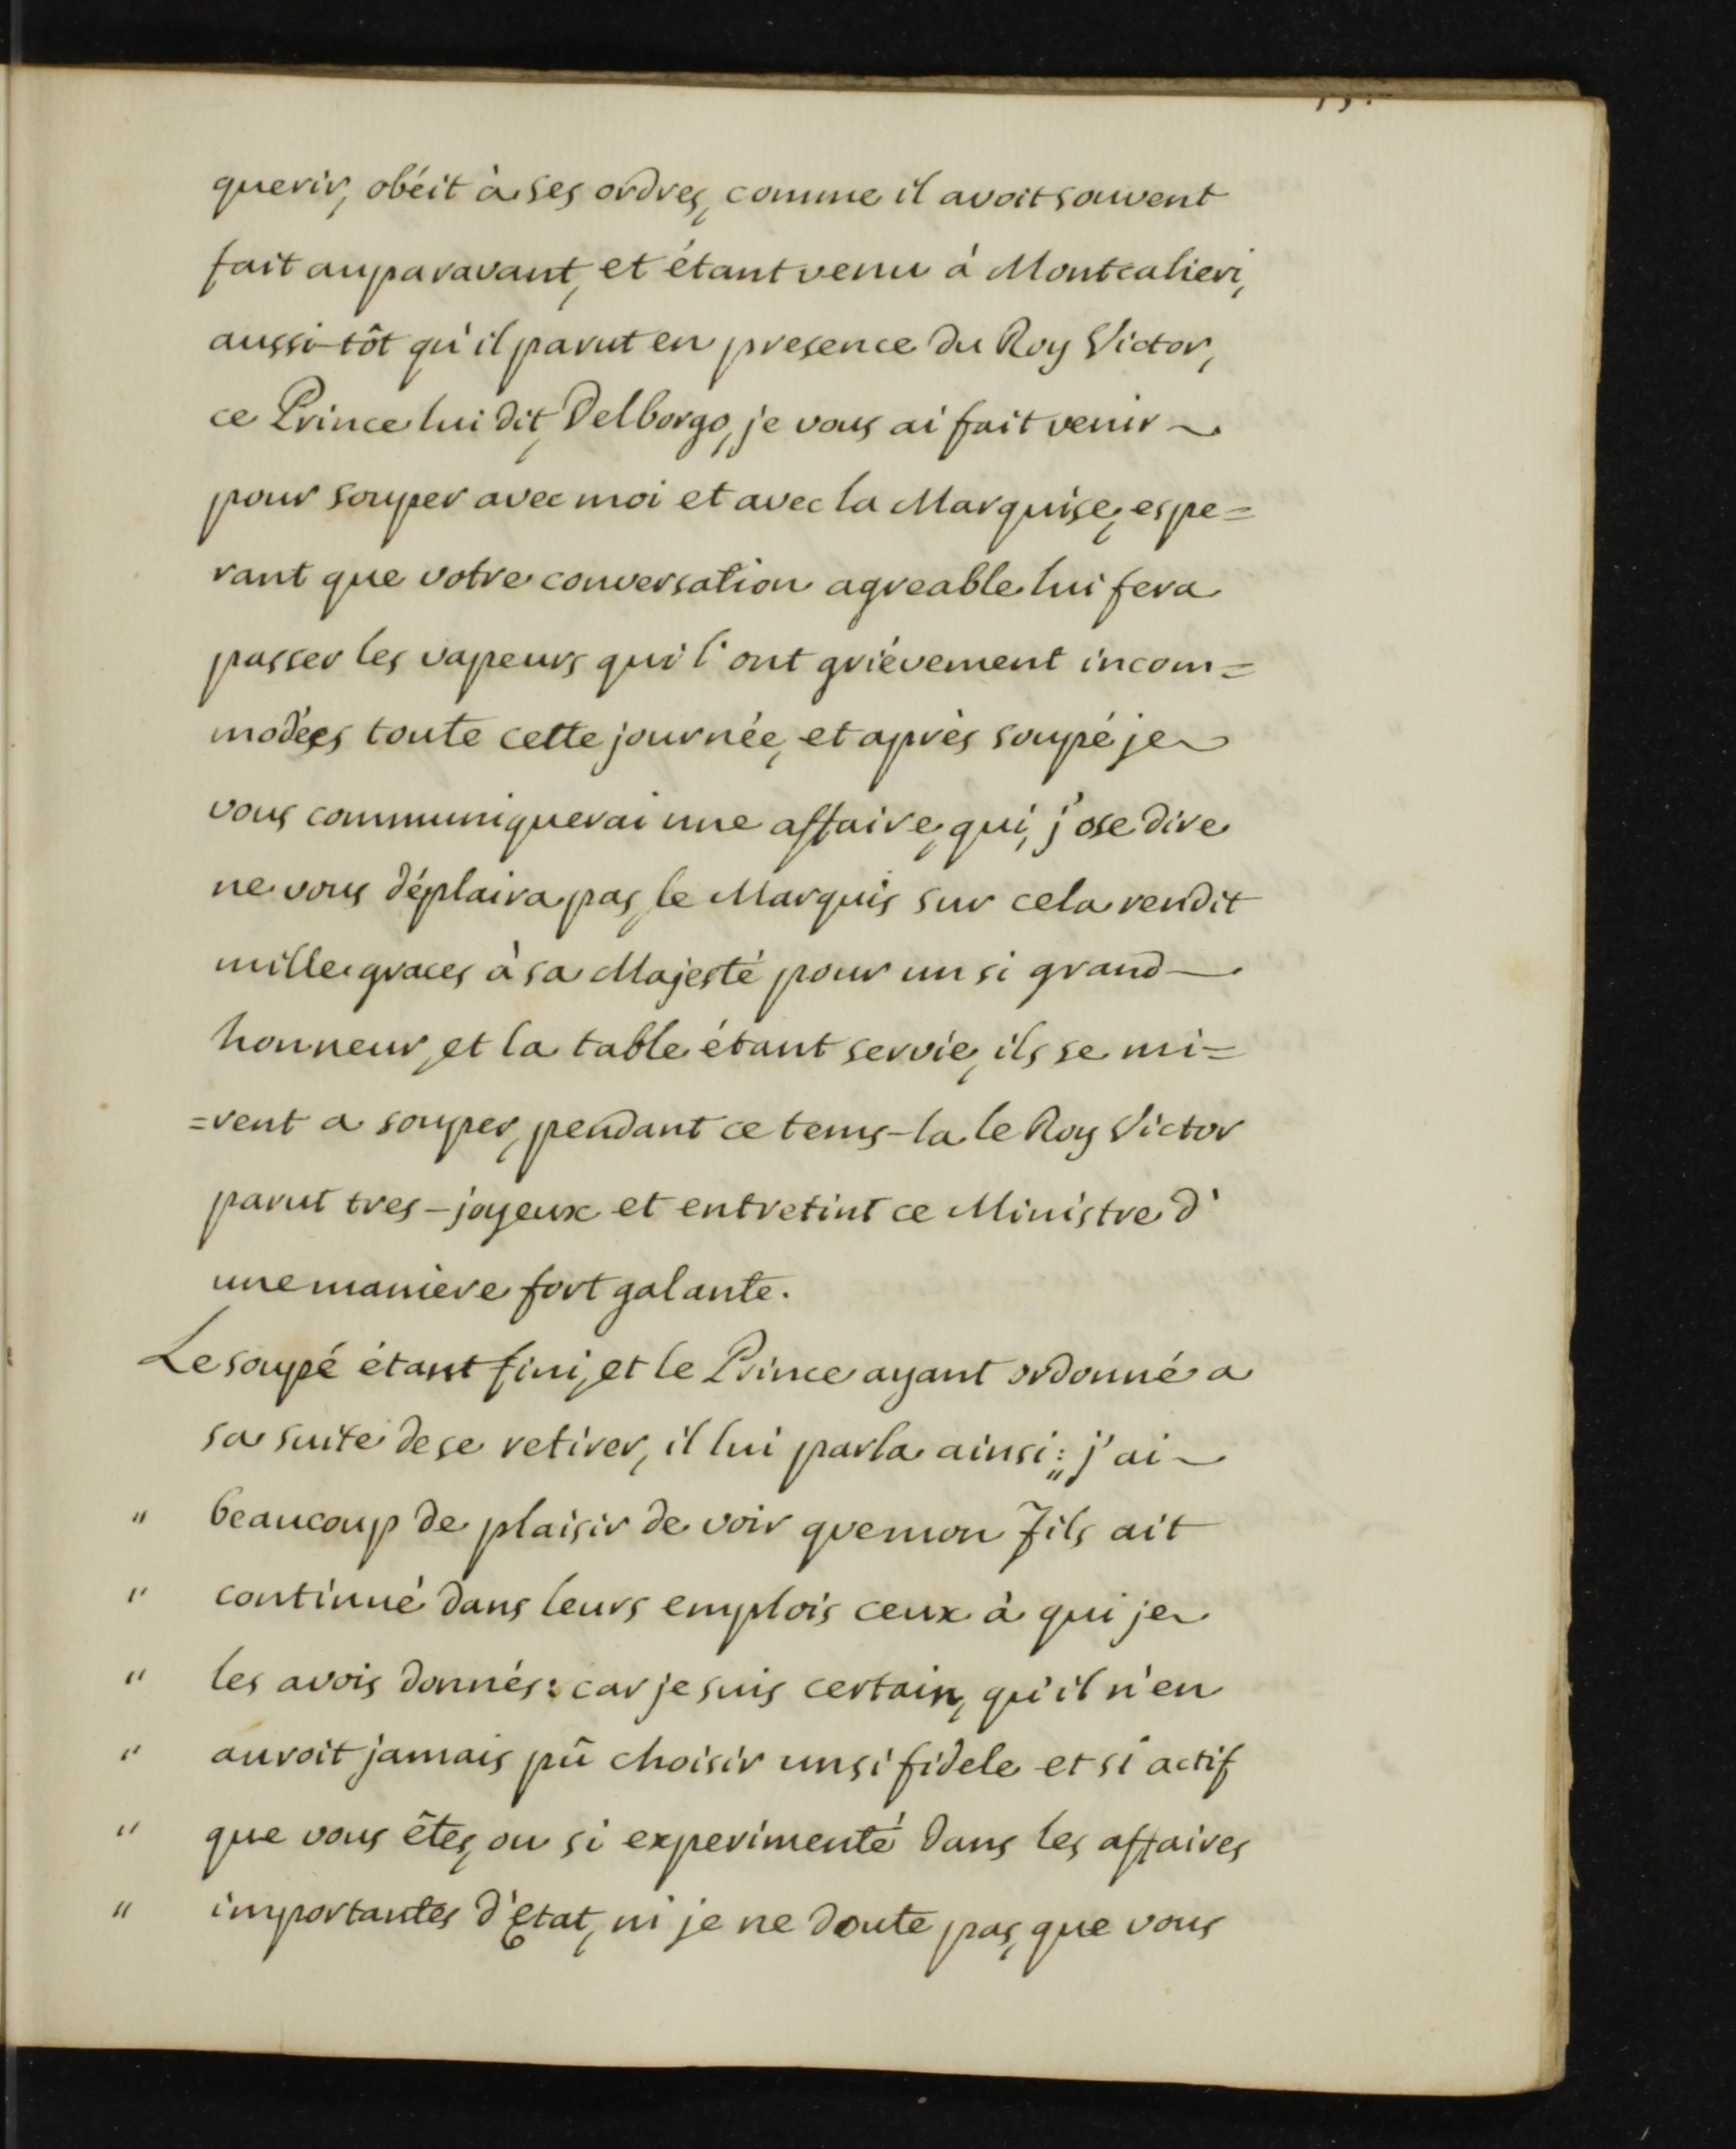 querir, obéit à ses ordres, comme il avoit souvent
fait auparavant, et étant venu à Montcalieri,
aussi-tôt qu'il parut en presence du Roy Victor,
ce Prince lui dit, Delborgo, je vous ai fait venir
pour souper avec moi et avec la Marquise, espe=
rant que votre conversation agreable lui fera
passer les vapeurs qui l'ont griévement incom=
modées toute cette journée, et après soupé je
vous communiquerai une affaire, qui, j'ose dire
ne vous déplaira pas, le Marquis sur cela rendit
mille graces à sa Majesté pour un si grand
honneur, et la table étant servie, ils se mi=
=rent a souper, pendant ce tems-la le Roy Victor
parut tres-joyeux et entretint ce Ministre d'
une maniere fort galante.
Le soupé étant fini, et le Prince ayant ordonné a
sa suite de se retirer, il lui parla ainsi: "j'ai
" beaucoup de plaisir de voir que mon Fils ait
" continué dans leurs emplois ceux à qui je
" les avois donnés: car je suis certain, qu'il n'en
" auroit jamais pû choisir un si fidele et si actif
" que vous êtes, ou si experimenté dans les affaires
" importantes d'Etat, ni je ne doute pas, que vous